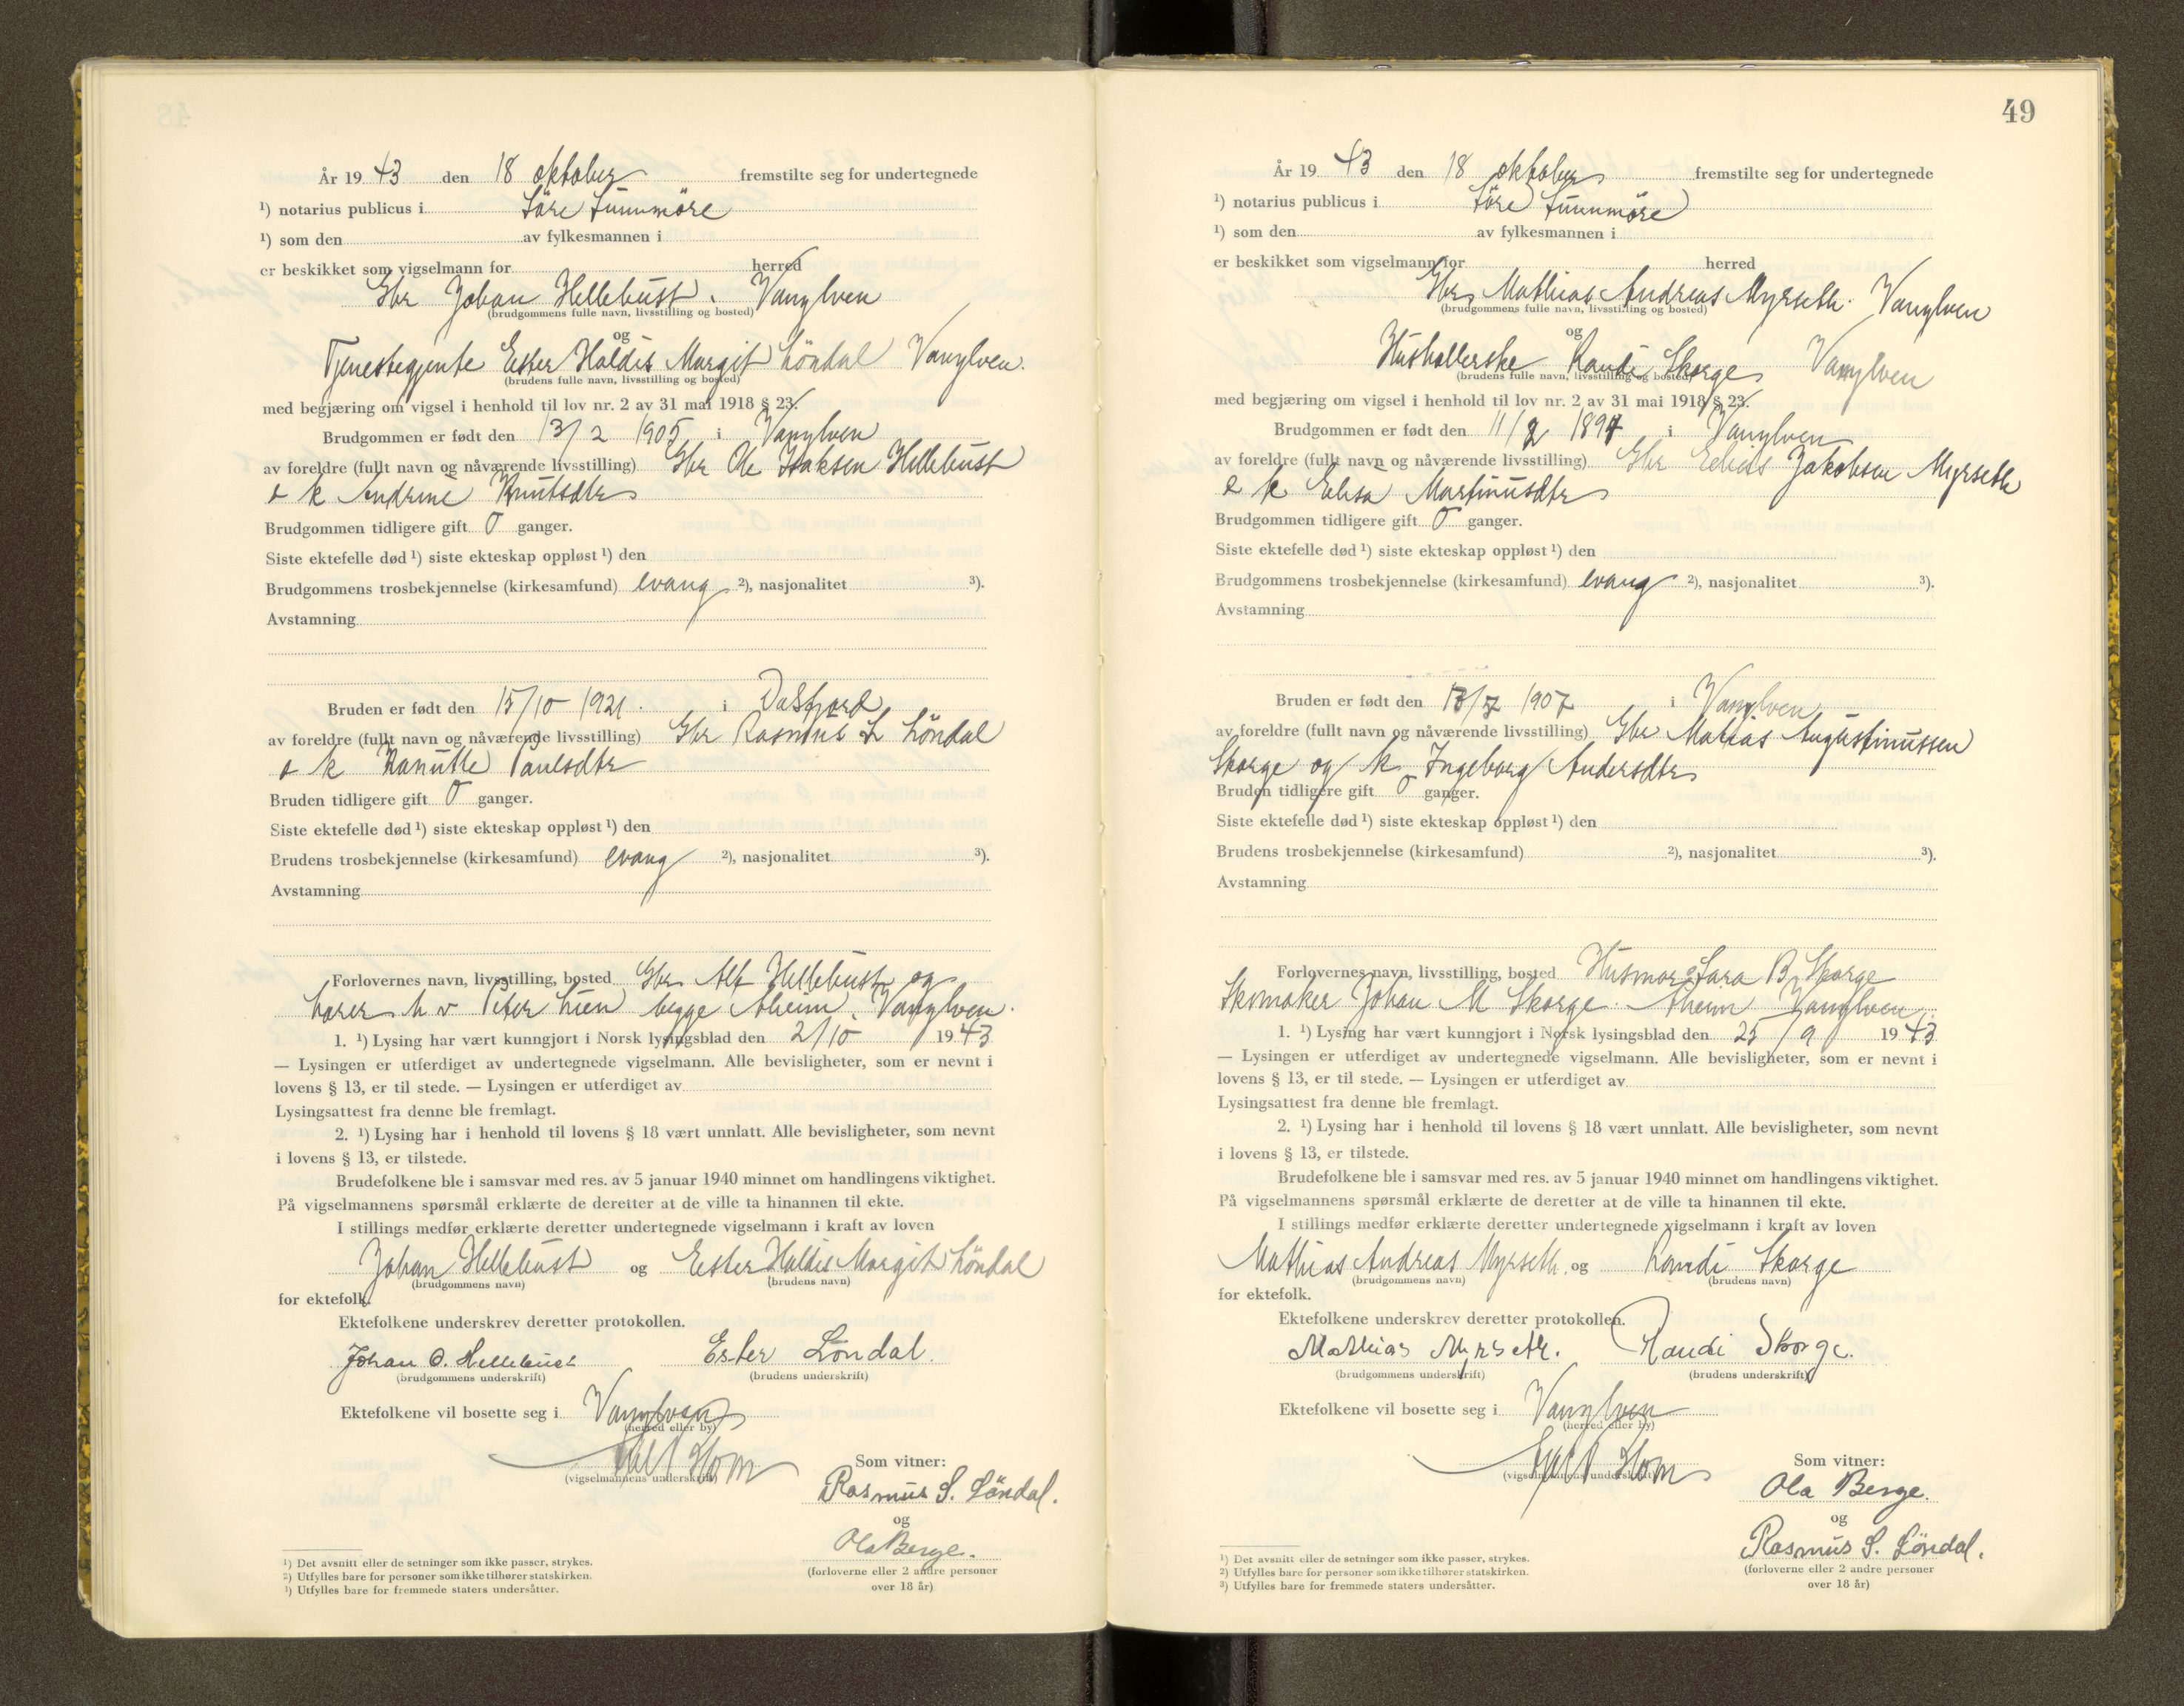 År 19 43 den 18 oktober fremstilte seg for undertegnede
¹) notarius publicus i Søre Sunnmøre
¹) som den av fylkesmannen i
er beskikket som vigselmann for herred
Gbr Johan Hellebust. Vanylven
(brudgommens fulle navn, livsstilling og bosted)
og
Tjenestegjente Ester Haldis Margit Löndal Vanylven.
(brudens fulle navn, livsstilling og bosted)
med begjæring om vigsel i henhold til lov nr. 2 av 31 mai 1918 § 23.
Brudgommen er født den 13/2 1905 i Vanylven
av foreldre (fullt navn og nåværende livsstilling) Gbr Ole Isaksen Hellebust
o k Andrine Knutsdtr
Brudgommen tidligere gift 0 ganger.
Siste ektefelle død ¹) siste ekteskap oppløst ¹) den
Brudgommens trosbekjennelse (kirkesamfund) evang ²), nasjonalitet ³).
Avstamning
Bruden er født den 15/10 1921. i Dalsfjord
av foreldre (fullt navn og nåværende livsstilling) Gbr Rasmus S Löndal
o k Paulsdtr
Bruden tidligere gift 0 ganger.
Siste ektefelle død ¹) siste ekteskap oppløst ¹) den
Brudens trosbekjennelse (kirkesamfund) evang ²), nasjonalitet ³).
Avstamning
Forlovernes navn, livsstilling, bosted Gbr Alf Hellebust og
Lärer h v Peter Lien begge Åheim, Vanylven.
1. ¹) Lysing har vært kunngjort i Norsk lysingsblad den 2/10 19 43
— Lysingen er utferdiget av undertegnede vigselmann. Alle bevisligheter, som er nevnt i
lovens § 13, er til stede. — Lysingen er utferdiget av
Lysingsattest fra denne ble fremlagt.
2. ¹) Lysing har i henhold til lovens § 18 vært unnlatt. Alle bevisligheter, som nevnt
i lovens § 13, er tilstede.
Brudefolkene ble i samsvar med res. av 5 januar 1940 minnet om handlingens viktighet.
På vigselmannens spørsmål erklærte de deretter at de ville ta hinannen til ekte.
I stillings medfør erklærte deretter undertegnede vigselmann i kraft av loven
Johan Hellebust og Ester Haldis Margit Löndal
(brudgommens navn) (brudens navn)
for ektefolk.
Ektefolkene underskrev deretter protokollen.
Johan O. Hellebust Ester Löndal.
(brudgommens underskrift) (brudens underskrift)
Ektefolkene vil bosette seg i Vanylven
(herred eller by)
(vigselmannens underskrift)
Som vitner:
Rasmus S. Löndal.
og
Ola Berge.
(forloverne eller 2 andre personer
over 18 år)
¹) Det avsnitt eller de setninger som ikke passer, strykes.
²) Utfylles bare for personer som ikke tilhører statskirken.
³) Utfylles bare for fremmede staters undersåtter.
49
År 19 43 den 18 oktober fremstilte seg for undertegnede
¹) notarius publicus i Søre Sunnmøre
¹) som den av fylkesmannen i
er beskikket som vigselmann for herred
Gbr Mathias Andreas Myrseth. Vanylven
(brudgommens fulle navn, livsstilling og bosted)
og
Husholderske Randi Skorge Vanylven
(brudens fulle navn, livsstilling og bosted)
med begjæring om vigsel i henhold til lov nr. 2 av 31 mai 1918 § 23.
Brudgommen er født den 11/2 1897 i Vanylven
av foreldre (fullt navn og nåværende livsstilling) Gbr Jakobsen Myrseth
o k Elisa Martinusdtr
Brudgommen tidligere gift 0 ganger.
Siste ektefelle død ¹) siste ekteskap oppløst ¹) den
Brudgommens trosbekjennelse (kirkesamfund) evang ²), nasjonalitet ³).
Avstamning
Bruden er født den 1907 i Vanylven
av foreldre (fullt navn og nåværende livsstilling) Gbr Matias Augustinussen
Skorge og k Ingeborg Andersdtr
Bruden tidligere gift 0 ganger.
Siste ektefelle død ¹) siste ekteskap oppløst ¹) den
Brudens trosbekjennelse (kirkesamfund) ²), nasjonalitet ³).
Avstamning
Forlovernes navn, livsstilling, bosted Husmor Sara B. Skorge
Skomaker Johan M Skorge. Åheim Vanylven.
1. ¹) Lysing har vært kunngjort i Norsk lysingsblad den 25/9 19 43
— Lysingen er utferdiget av undertegnede vigselmann. Alle bevisligheter, som er nevnt i
lovens § 13, er til stede. — Lysingen er utferdiget av
Lysingsattest fra denne ble fremlagt.
2. ¹) Lysing har i henhold til lovens § 18 vært unnlatt. Alle bevisligheter, som nevnt
i lovens § 13, er tilstede.
Brudefolkene ble i samsvar med res. av 5 januar 1940 minnet om handlingens viktighet.
På vigselmannens spørsmål erklærte de deretter at de ville ta hinannen til ekte.
I stillings medfør erklærte deretter undertegnede vigselmann i kraft av loven
Mathias Andreas Myrseth og Randi Skorge
(brudgommens navn) (brudens navn)
for ektefolk.
Ektefolkene underskrev deretter protokollen.
Mathias Myrseth. Randi Skorge.
(brudgommens underskrift) (brudens underskrift)
Ektefolkene vil bosette seg i Vanylven
(herred eller by)
(vigselmannens underskrift)
Som vitner:
Ola Berge.
og
Rasmus S. Löndal.
(forloverne eller 2 andre personer
over 18 år)
¹) Det avsnitt eller de setninger som ikke passer, strykes.
²) Utfylles bare for personer som ikke tilhører statskirken.
³) Utfylles bare for fremmede staters undersåtter.